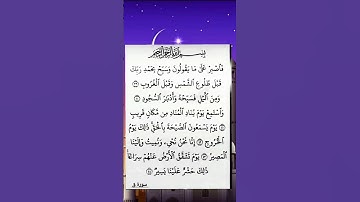 بسم الله الرحمن الرحيم
فَٱصْبِرْ عَلَىٰ مَا يَقُولُونَ وَسَبِّحْ بِحَمْدِ رَبِّكَ
قَبْلَ طُلُوعِ ٱلشَّمْسِ وَقَبْلَ ٱلْغُرُوبِ ٣٩
وَمِنَ ٱلَّيْلِ فَسَبِّحْهُ وَأَدْبَٰرَ ٱلسُّجُودِ ٤٠
وَٱسْتَمِعْ يَوْمَ يُنَادِ ٱلْمُنَادِ مِن مَّكَانٍ قَرِيبٍ
٤١ يَوْمَ يَسْمَعُونَ ٱلصَّيْحَةَ بِٱلْحَقِّ ذَٰلِكَ يَوْمُ
ٱلْخُرُوجِ ٤٢ إِنَّا نَحْنُ نُحْيِۦ وَنُمِيتُ وَإِلَيْنَا
ٱلْمَصِيرُ ٤٣ يَوْمَ تَشَقَّقُ ٱلْأَرْضُ عَنْهُمْ سِرَاعًا
ذَٰلِكَ حَشْرٌ عَلَيْنَا يَسِيرٌ ٤٤
سورة ق